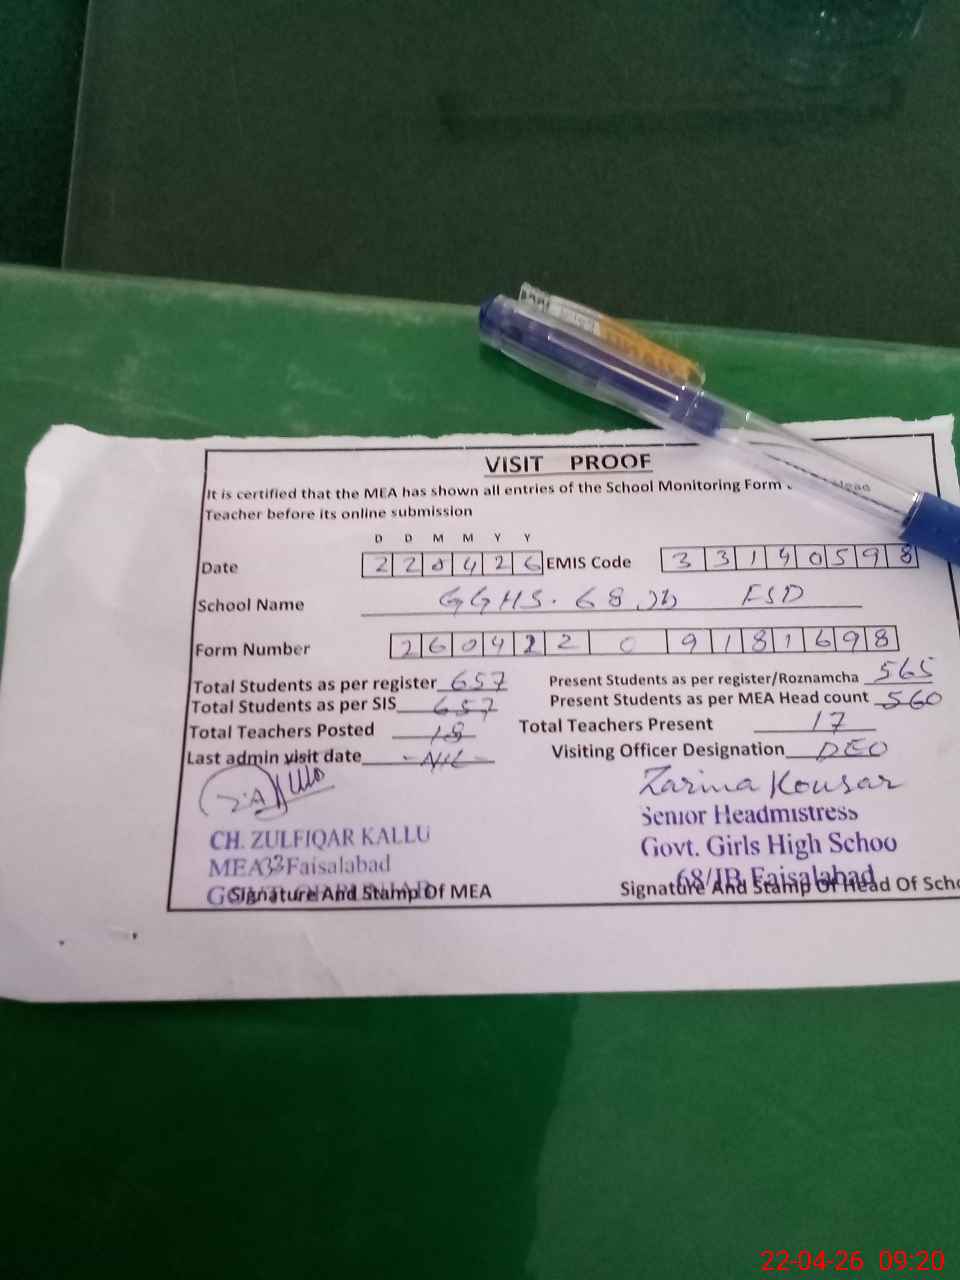 VISIT PROOF
It is certified that the MEA has shown all entries of the School Monitoring Form Head
Teacher before its online submission
D D M M Y Y
Date 2 2 0 4 2 6 EMIS Code 3 3 1 4 0 5 9 8
School Name GGHS. 68 JB FSD
Form Number 2 6 0 4 2 2 0 9 1 8 1 6 9 8
Total Students as per register 657 Present Students as per register/Roznamcha 565
Total Students as per SIS 657 Present Students as per MEA Head count 560
Total Teachers Posted 18 Total Teachers Present 17
Last admin visit date -NIL- Visiting Officer Designation DEO
Zarina Kousar
CH. ZULFIQAR KALLU Senior Headmistress
MEA 33 Faisalabad Govt. Girls High Schoo
68/JB Faisalabad
Signature And Stamp Of MEA Signature And Stamp Of Head Of Scho
22-04-26 09:20